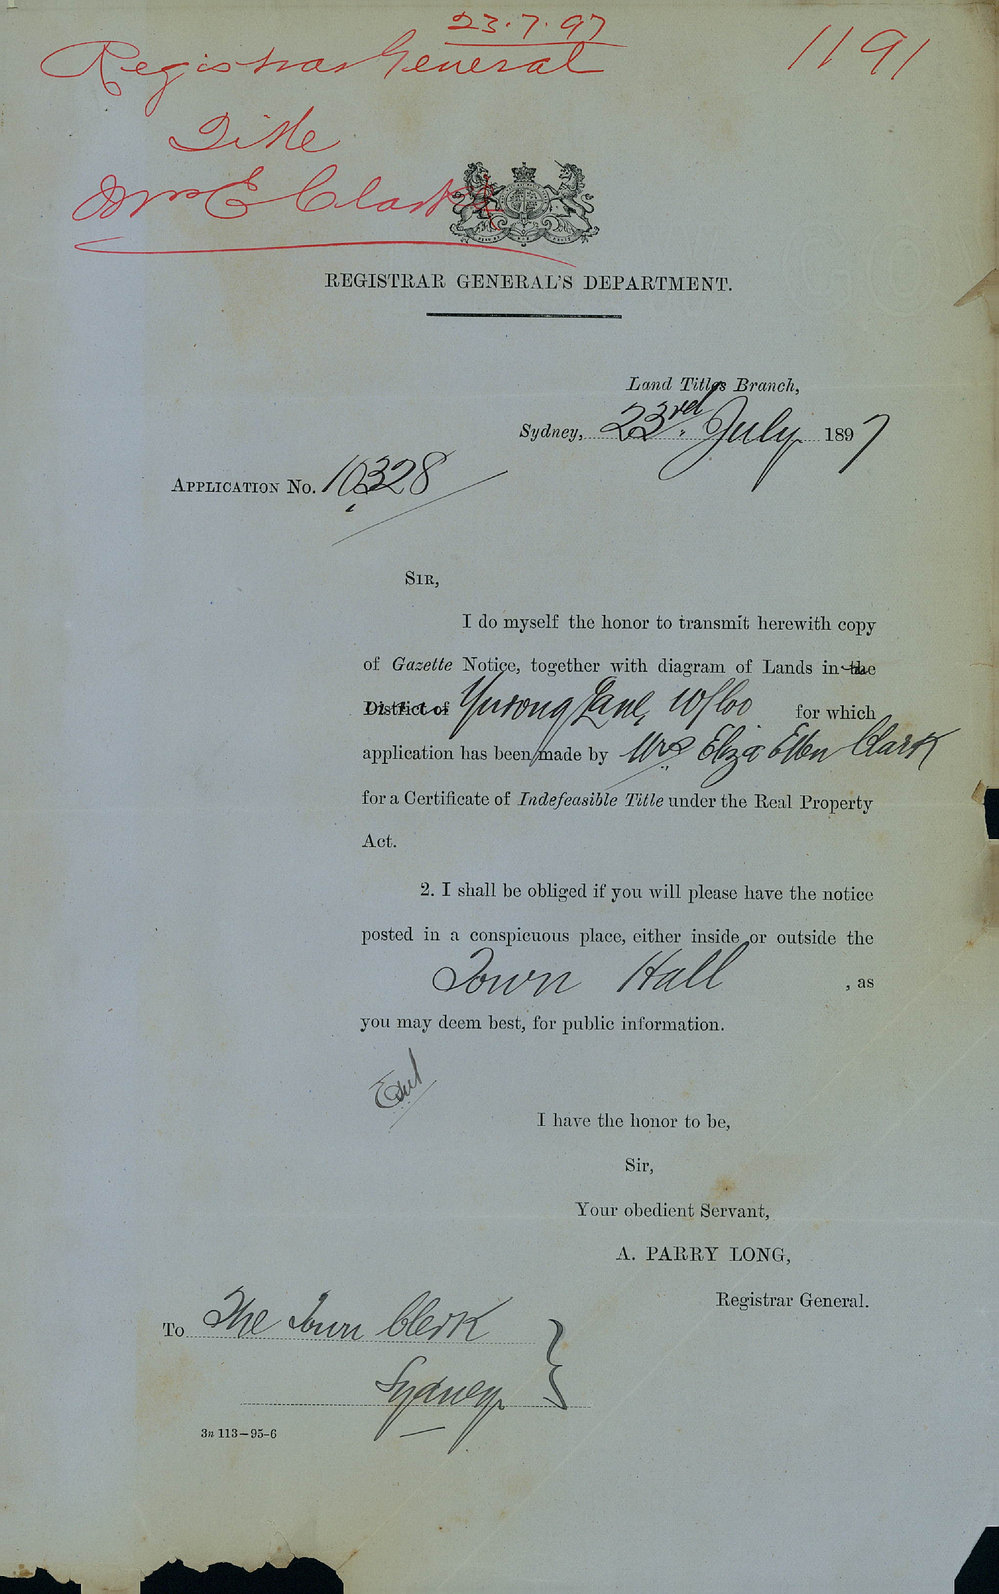 23.7.97
Registrar General
1191
Title
Mrs E Clark
REGISTRAR GENERAL'S DEPARTMENT.
Land Titles Branch,
Sydney, 23rd. July 1897
APPLICATION No. 10328
SIR,
I do myself the honor to transmit herewith copy
of Gazette Notice, together with diagram of Lands in the
District of Yurong Lane, W/loo for which
application has been made by Mrs Eliza Ellen Clark
for a Certificate of Indefeasible Title under the Real Property
Act.
2. I shall be obliged if you will please have the notice
posted in a conspicuous place, either inside or outside the
Town Hall , as
you may deem best, for public information.
I have the honor to be,
Sir,
Your obedient Servant,
A. PARRY LONG,
Registrar General.
To The Town Clerk
Sydney
3n 113—95-6